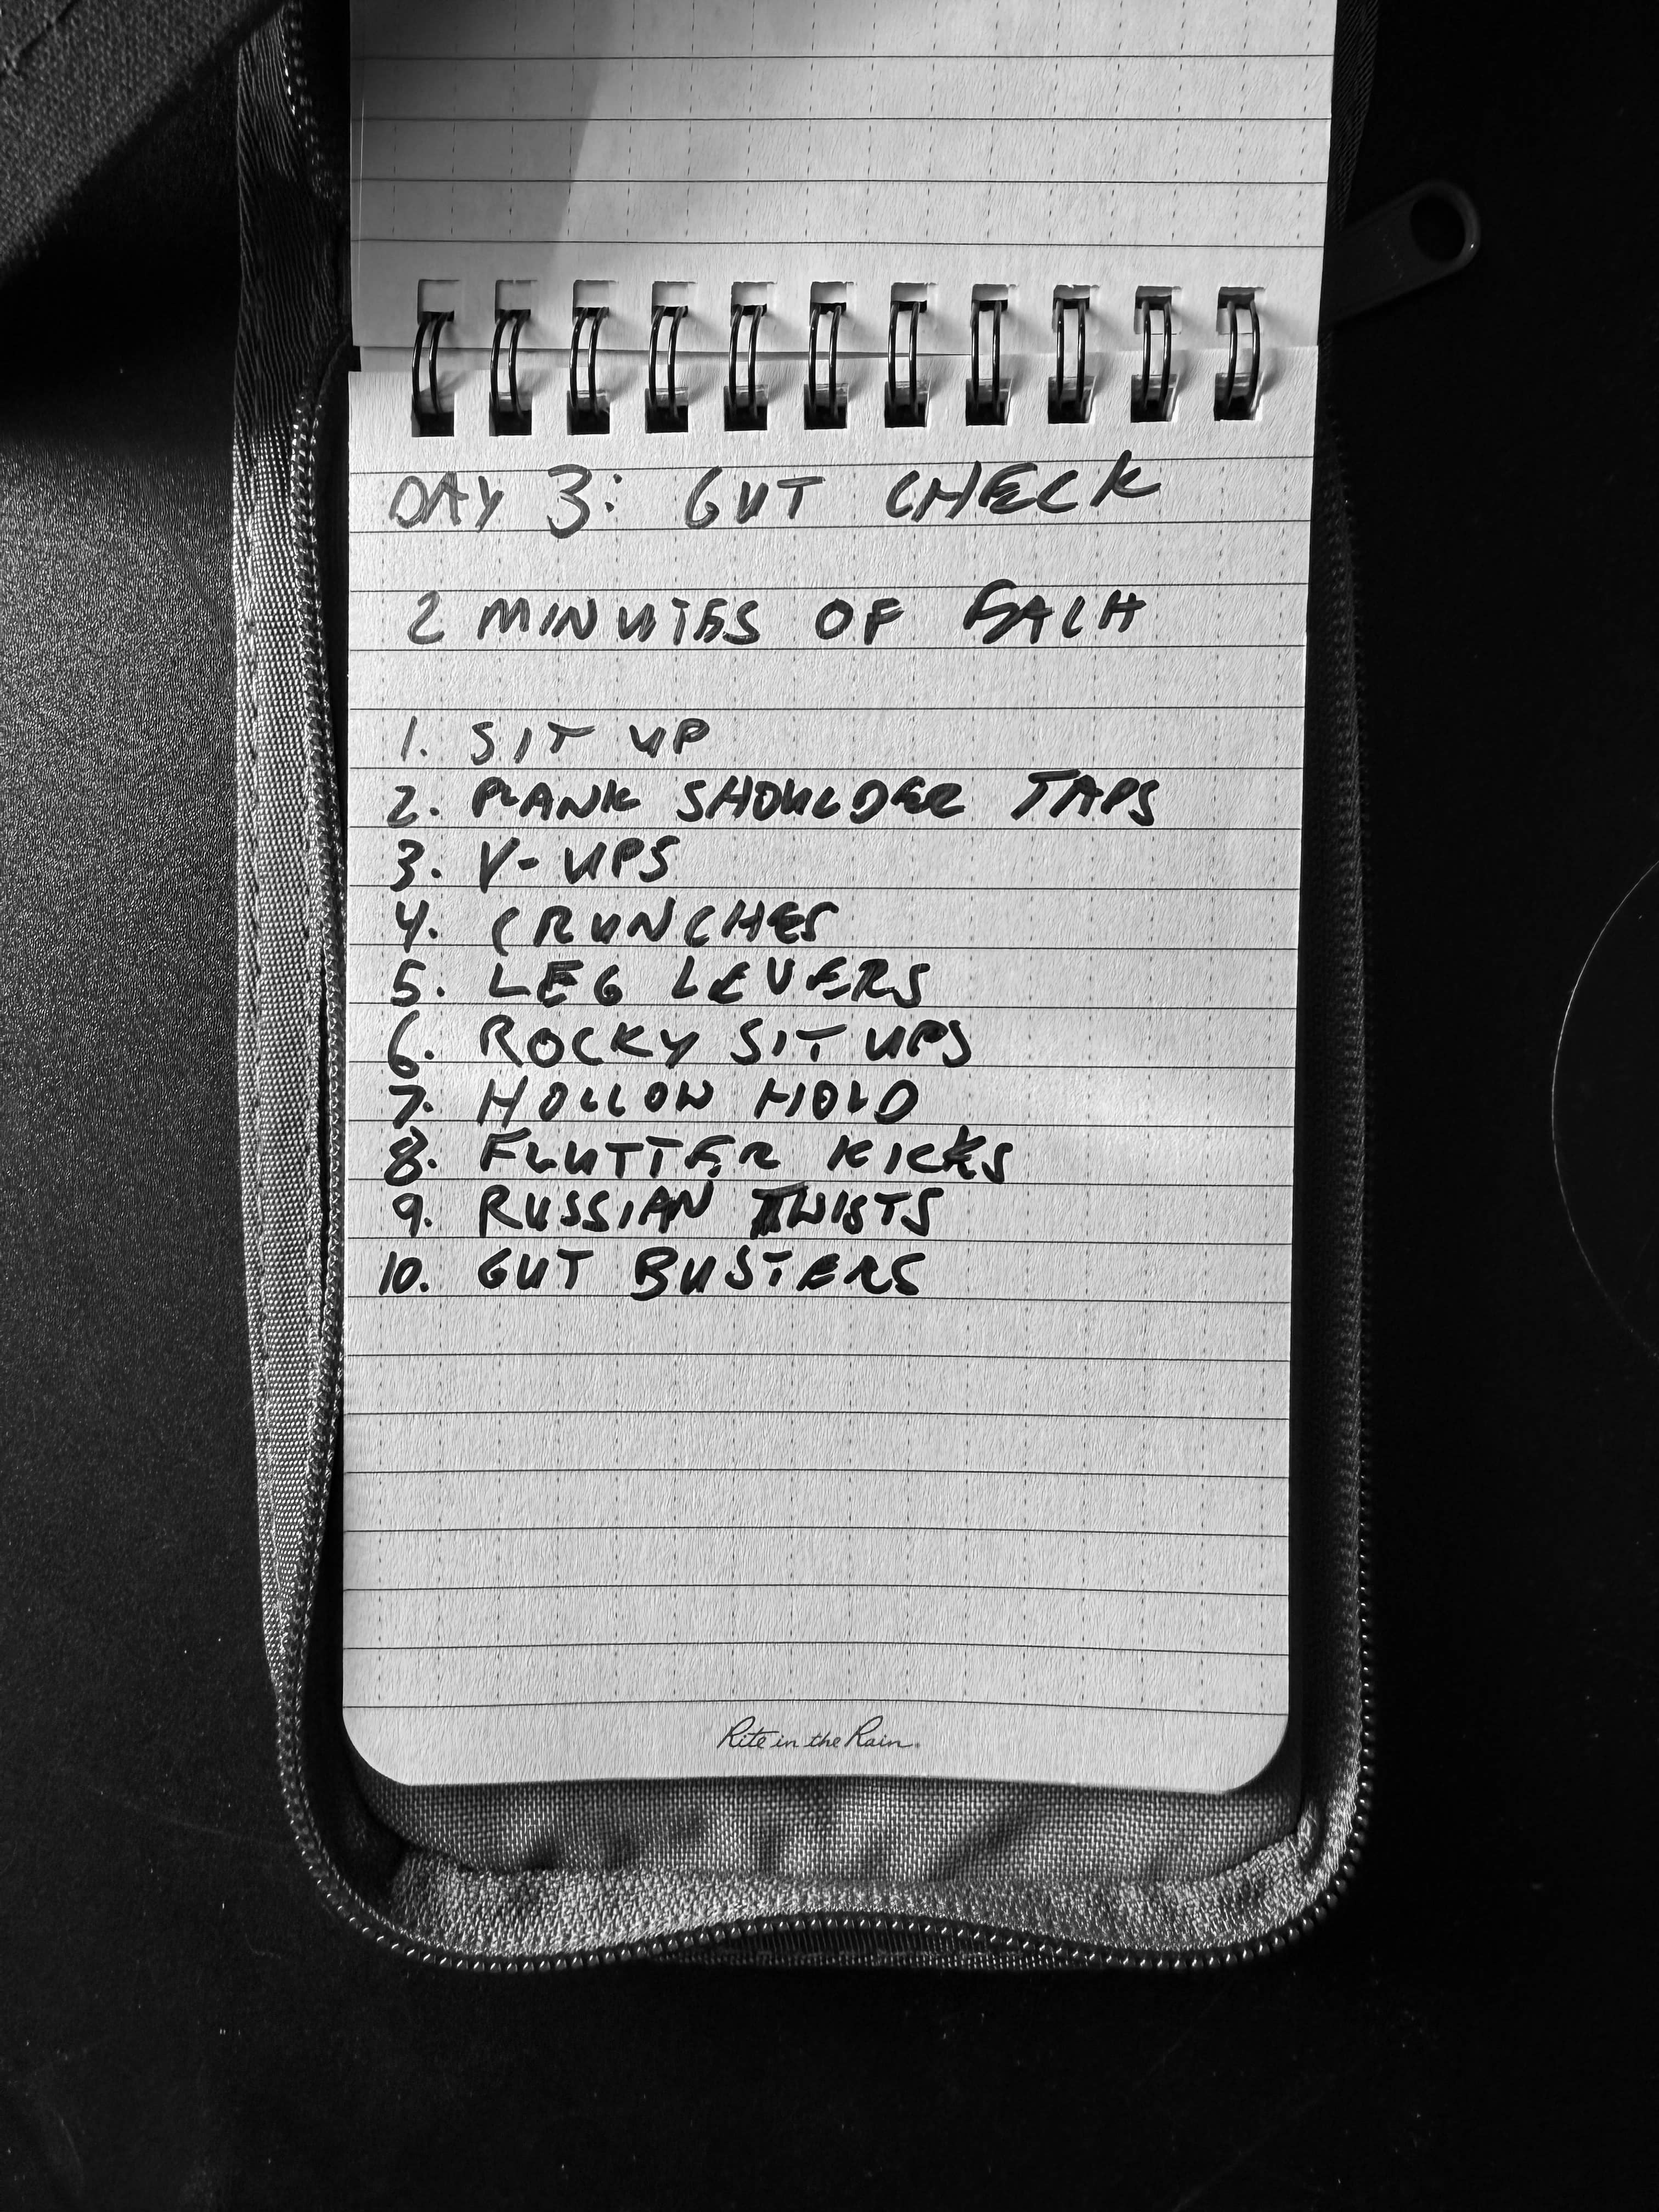 DAY 3: GUT CHECK
2 MINUTES OF EACH
1. SIT UP
2. PLANK SHOULDER TAPS
3. V-UPS
4. CRUNCHES
5. LEG LEVERS
6. ROCKY SIT UPS
7. HOLLOW HOLD
8. FLUTTER KICKS
9. RUSSIAN TWISTS
10. GUT BUSTERS
Rite in the Rain.